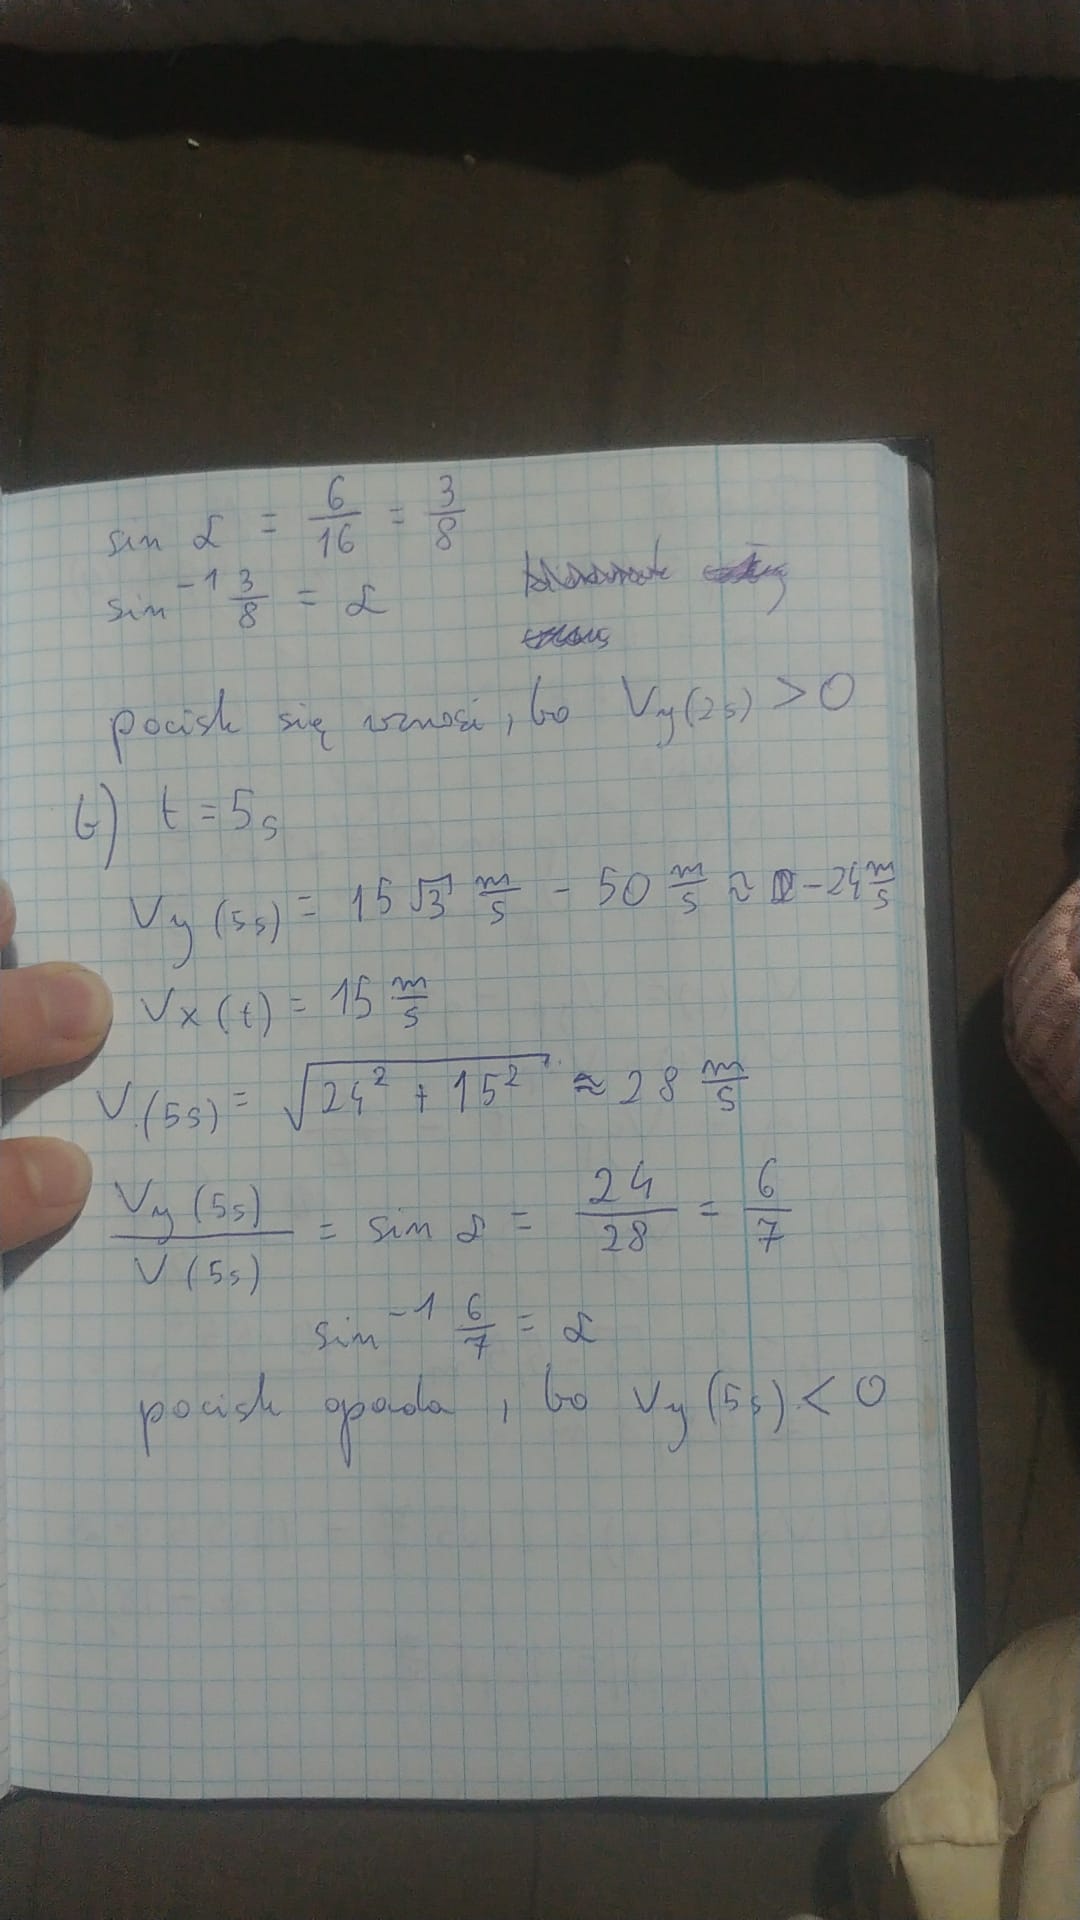 sin α = 6/16 = 3/8
sin⁻¹ 3/8 = α
pocisk się wznosi, bo Vy(2s) > 0
b) t = 5s
Vy(5s) = 15√3 m/s - 50 m/s ≈ -24 m/s
Vx(t) = 15 m/s
V(5s) = √(24² + 15²) ≈ 28 m/s
Vy(5s)/V(5s) = sin α = 24/28 = 6/7
sin⁻¹ 6/7 = α
pocisk opada, bo Vy(5s) < 0